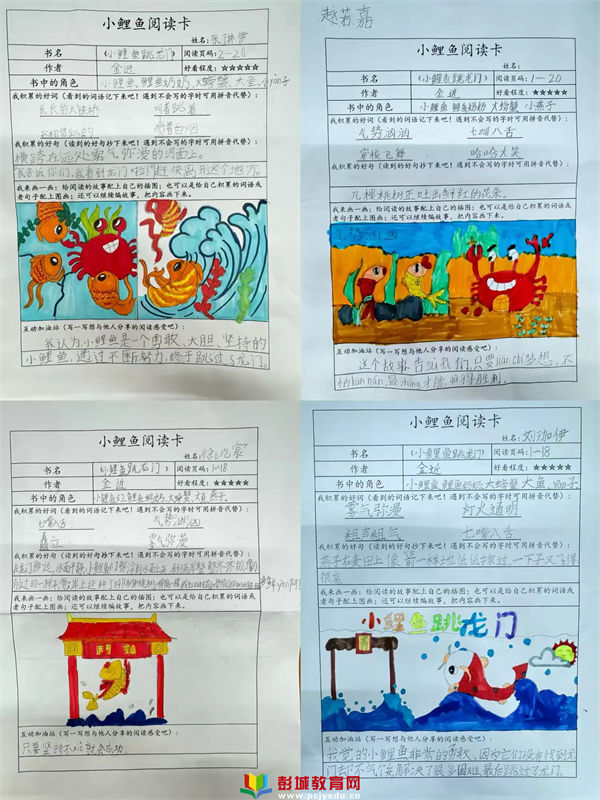 小鲤鱼阅读卡
姓名:张琳伊
书名 《小鲤鱼跳龙门》 阅读页码:2-20
作者 金近 好看程度:★★★★★
书中的角色 小鲤鱼、鲤鱼奶奶、大螃蟹、大鱼、小yàn子
我积累的好词(看到的词语记下来吧!遇到不会写的字时可用拼音代替):
长长的大铁桥 叫着跳着
喷着白烟
我积累的好句(读到的好句抄下来吧!遇到不会写的字时可用拼音代替):
横跨在远处雾气弥漫的河面上。
我告诉你们,我看到龙门啦!赶快离开这个地方。
我来画一画:给阅读的故事配上自己的插图;也可以是给自己积累的词语或
者句子配上图画;还可以继续编故事,把内容画下来。
互动加油站(写一写想与他人分享的阅读感受吧):
我认为,小鲤鱼是一个勇敢、大胆、坚持的
小鲤鱼,通过不断努力,终于跳过了龙门。
赵若嘉
小鲤鱼阅读卡
姓名:
书名 《小鲤鱼跳龙门》 阅读页码:1~20
作者 金近 好看程度:★★★★★
书中的角色 小鲤鱼 鲤鱼奶奶 大螃蟹 小燕子
我积累的好词(看到的词语记下来吧!遇到不会写的字时可用拼音代替):
气势汹汹 七嘴八舌
哈哈大笑
我积累的好句(读到的好句抄下来吧!遇到不会写的字时可用拼音代替):
几棵桃树正吐出鲜红的花朵。
我来画一画:给阅读的故事配上自己的插图;也可以是给自己积累的词语或
者句子配上图画;还可以继续编故事,把内容画下来。
互动加油站(写一写想与他人分享的阅读感受吧):
这个故事告sù我们,只要jiān chí梦想,不
pà kùn nán,最zhōng才能取得胜利。
小鲤鱼阅读卡
姓名:
书名 《小鲤鱼跳龙门》 阅读页码:1-18
作者 金近 好看程度:★★★★★
书中的角色 小鲤鱼们、鲤鱼奶奶、大螃蟹、大鱼、燕子
我积累的好词(看到的词语记下来吧!遇到不会写的字时可用拼音代替):
七嘴八舌 气势汹汹
矗立 雾气弥漫
我积累的好句(读到的好句抄下来吧!遇到不会写的字时可用拼音代替):
我来画一画:给阅读的故事配上自己的插图;也可以是给自己积累的词语或
者句子配上图画;还可以继续编故事,把内容画下来。
互动加油站(写一写想与他人分享的阅读感受吧):
只要坚持不xiè就会成功。
小鲤鱼阅读卡
姓名:刘珈伊
书名 《小鲤鱼跳龙门》 阅读页码:1-18
作者 金近 好看程度:★★★★★
书中的角色 小鲤鱼,鲤鱼奶奶,大螃蟹,大鱼,yàn子
我积累的好词(看到的词语记下来吧!遇到不会写的字时可用拼音代替):
雾气弥漫 灯火通明
粗声粗气 七嘴八舌
我积累的好句(读到的好句抄下来吧!遇到不会写的字时可用拼音代替):
燕子在麦田上像箭一样地低低掠过,一下子又飞得
很高
我来画一画:给阅读的故事配上自己的插图;也可以是给自己积累的词语或
者句子配上图画;还可以继续编故事,把内容画下来。
小鲤鱼跳龙门
互动加油站(写一写想与他人分享的阅读感受吧):
我觉的小鲤鱼非常的勇敢,因为它们没有找到龙
门去们不气něi解决了很多困难,最后跳过了龙门。
彭城教育网
www.pcjyedu.cn